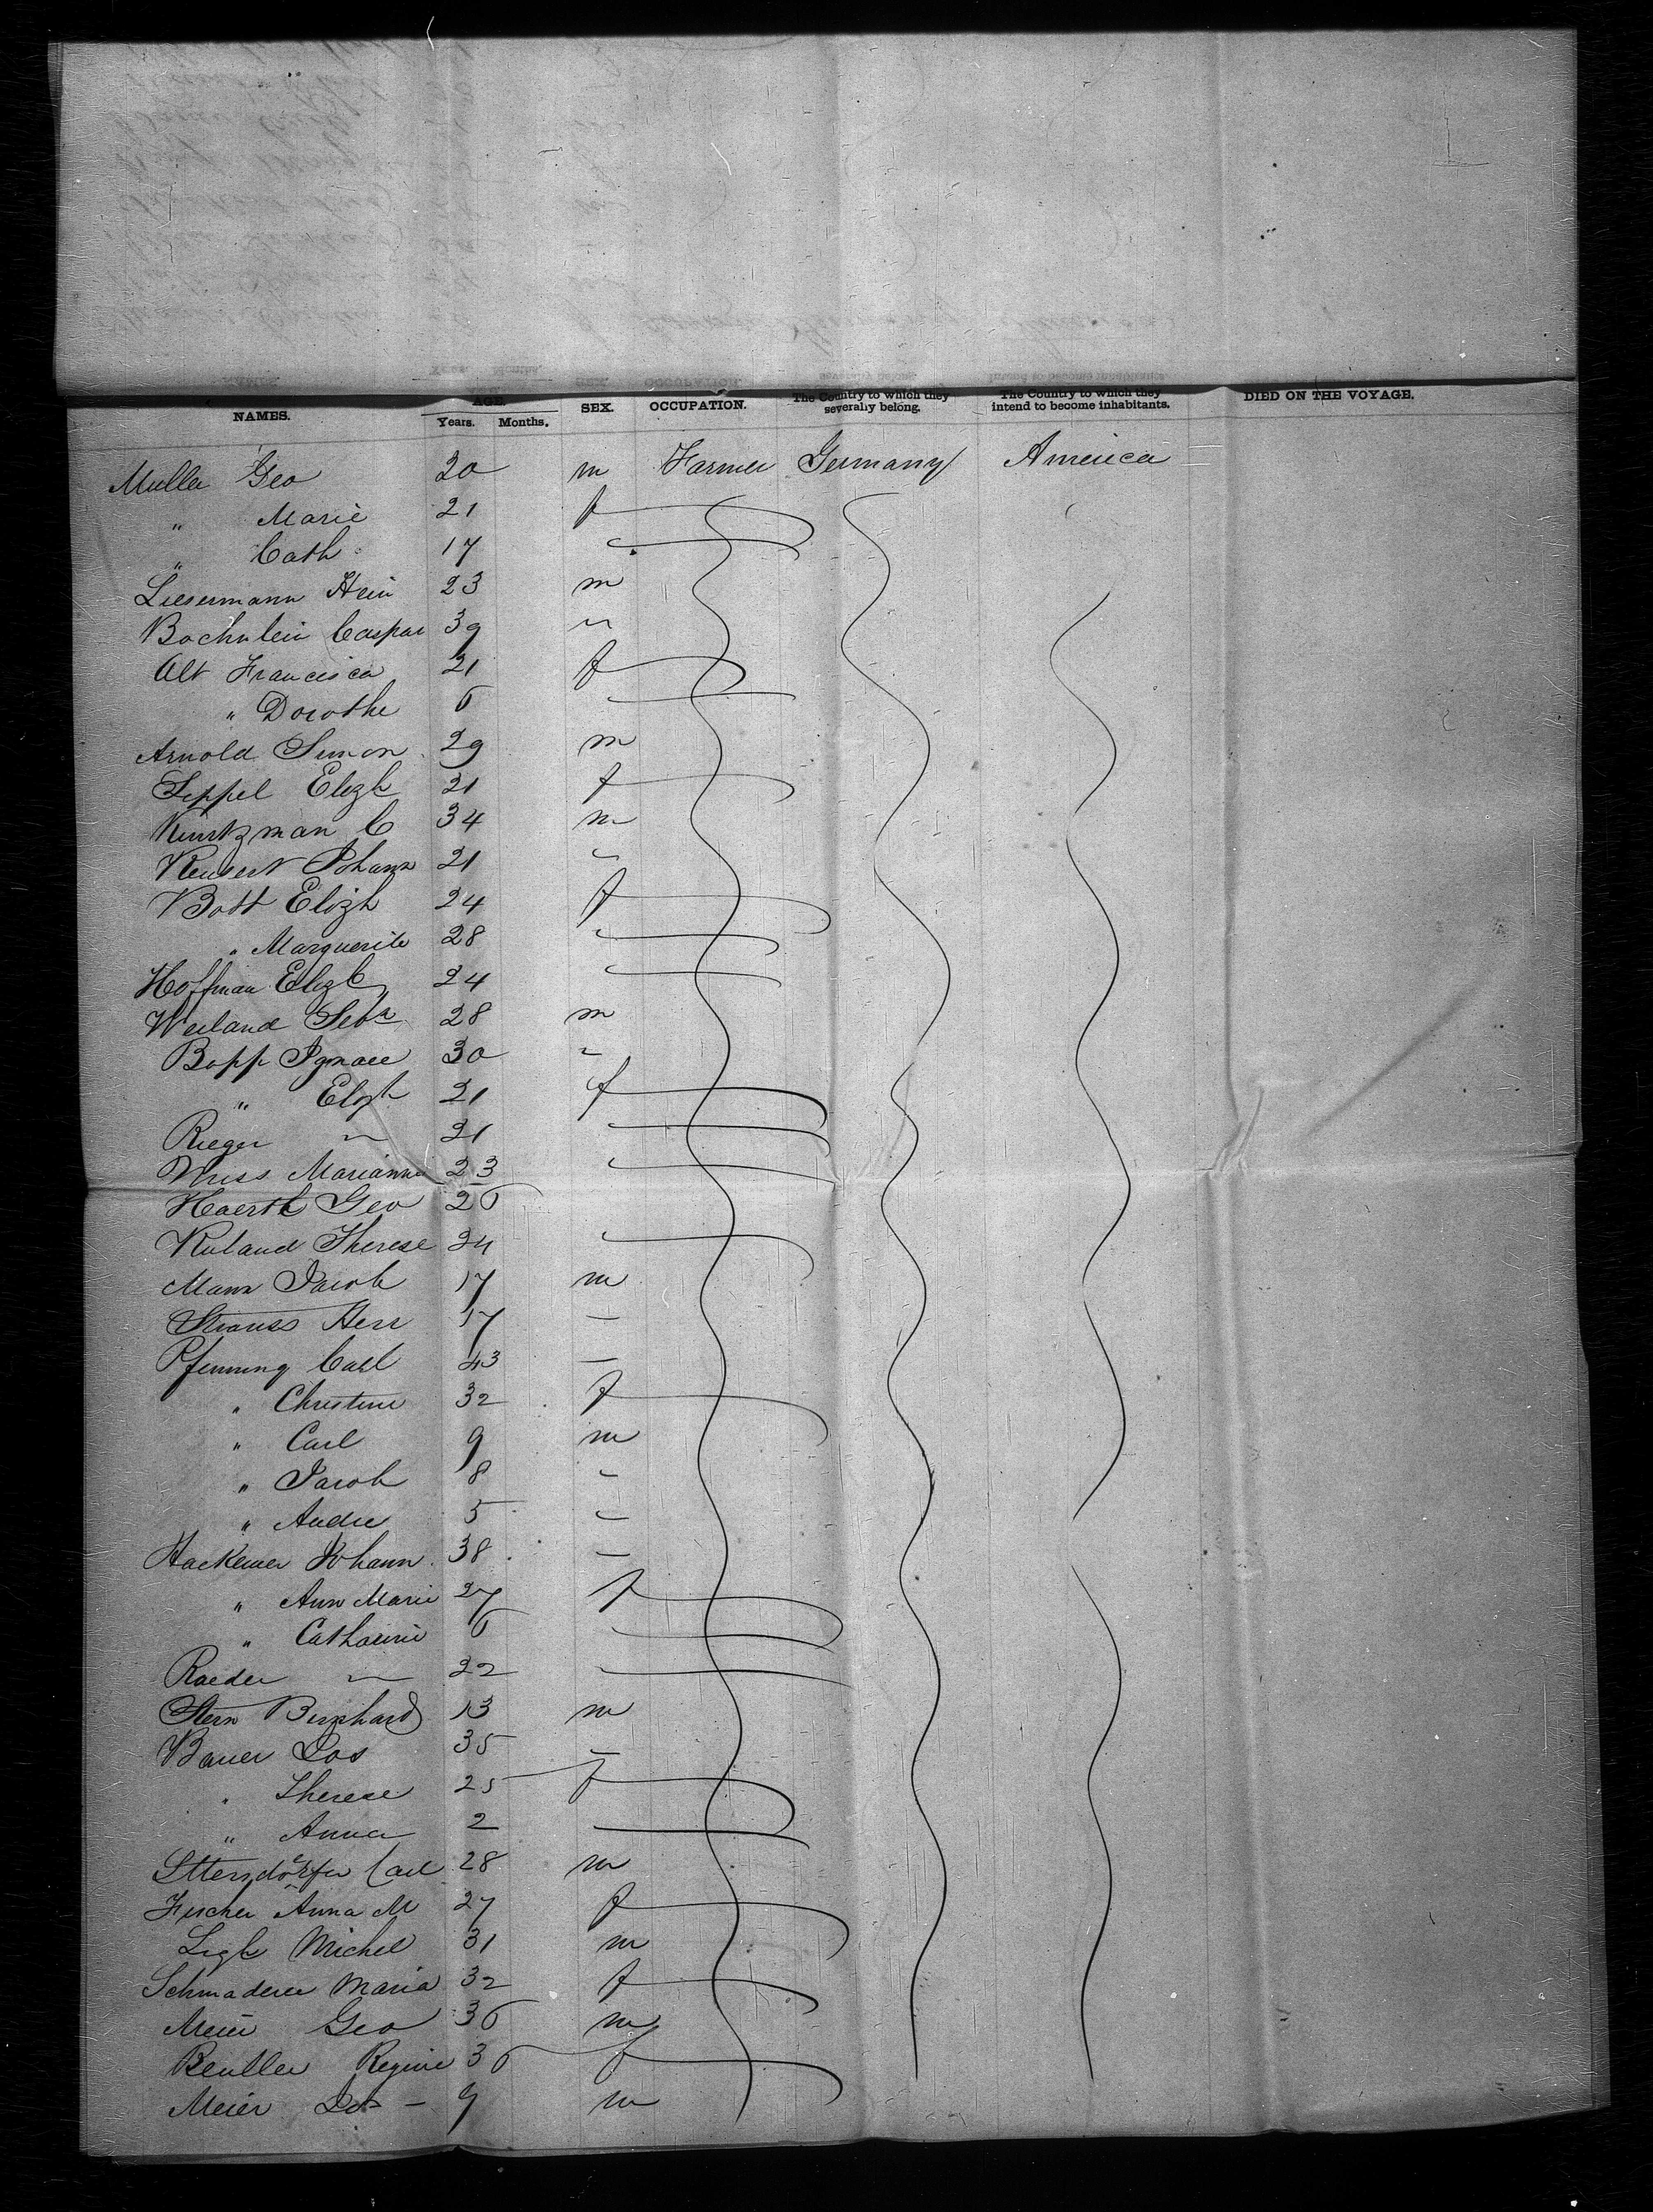 NAMES. AGE. Years. Months. SEX. OCCUPATION. The Country to which they severally belong. The Country to which they intend to become inhabitants. DIED ON THE VOYAGE.
Muller Geo 20 m Farmer Germany America
" Marie 21 f
" Cath 17
Liesermann Hein 23 m
Bachnlein Caspar 39 "
Alt Francisca 21 f
" Dorothe 6
Arnold Simon 29 m
Seppel Elizh 21 f
Kuntzman C 34 m
Keusert Johann 21
Bott Elizh 24 f
" Marguerite 28
Hoffman Elizh 24
Weiland Seb 28 m
Bopp Ignace 30 "
" Elizh 21 f
Rieger " 21
Marianna 23
Haerth Geo 26
Ruland Therese 24
Mann Jacob 17 m
Strauss Herr 17 —
Pfenning Carl 43 —
" Christine 32 f
" Carl 9 m
" Jacob 8 "
" Andre 5 "
Hackemer Johann 38 —
" Ann Marie 27 f
" Catharine 6
Raeder " 22
Stern Bernhard 13 m
Bauer Jos 35 —
" Therese 25 f
" Anna 2
Carl 28 m
Fischer Anna M 27 f
Ligh Michel 31 m
Schmaderer Maria 32 f
Meier Geo 36 m
Beutler Regine 36 f
Meier Jos — 9 m